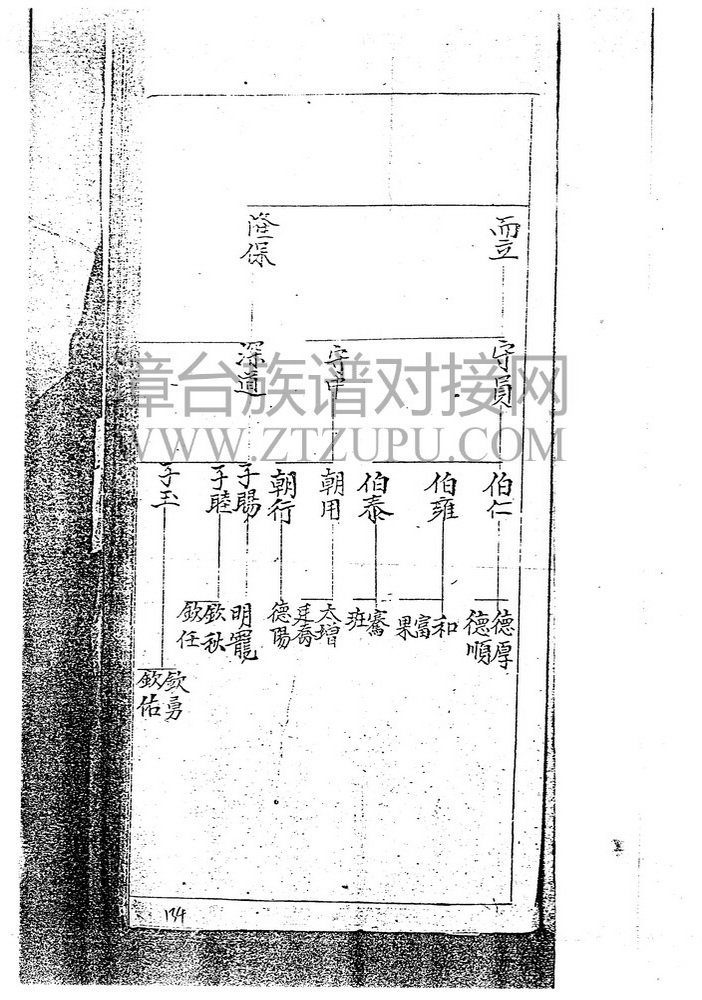 而立
隆保
守員
守中
深道
伯仁
伯雍
伯泰
朝用
朝行
子陽
子睦
子玉
德厚
德順
和
富
果
騫
班
太增
德陽
明寵
欽秋
欽任
欽勇
欽佑
134
章台族谱对接网
WWW.ZTZUPU.COM